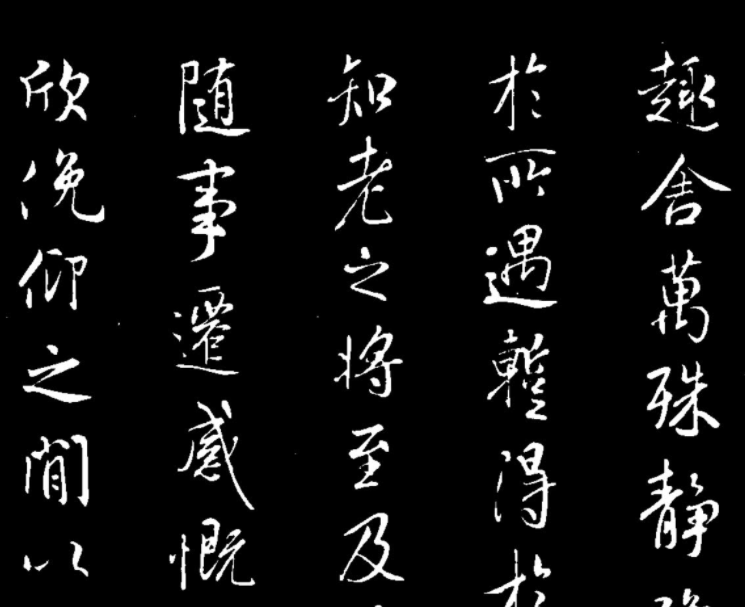 趣舍萬殊静
於所遇蹔得於
知老之將至及
随事遷感慨
欣俛仰之閒以